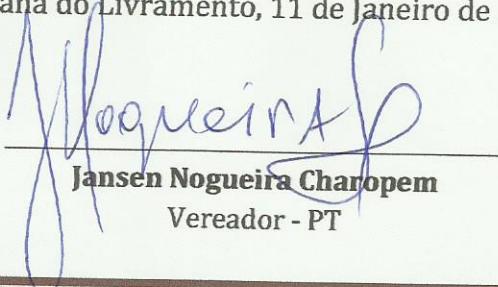 ana do Livramento, 11 de Janeiro de
Nogueira
Jansen Nogueira Charopem
Vereador - PT